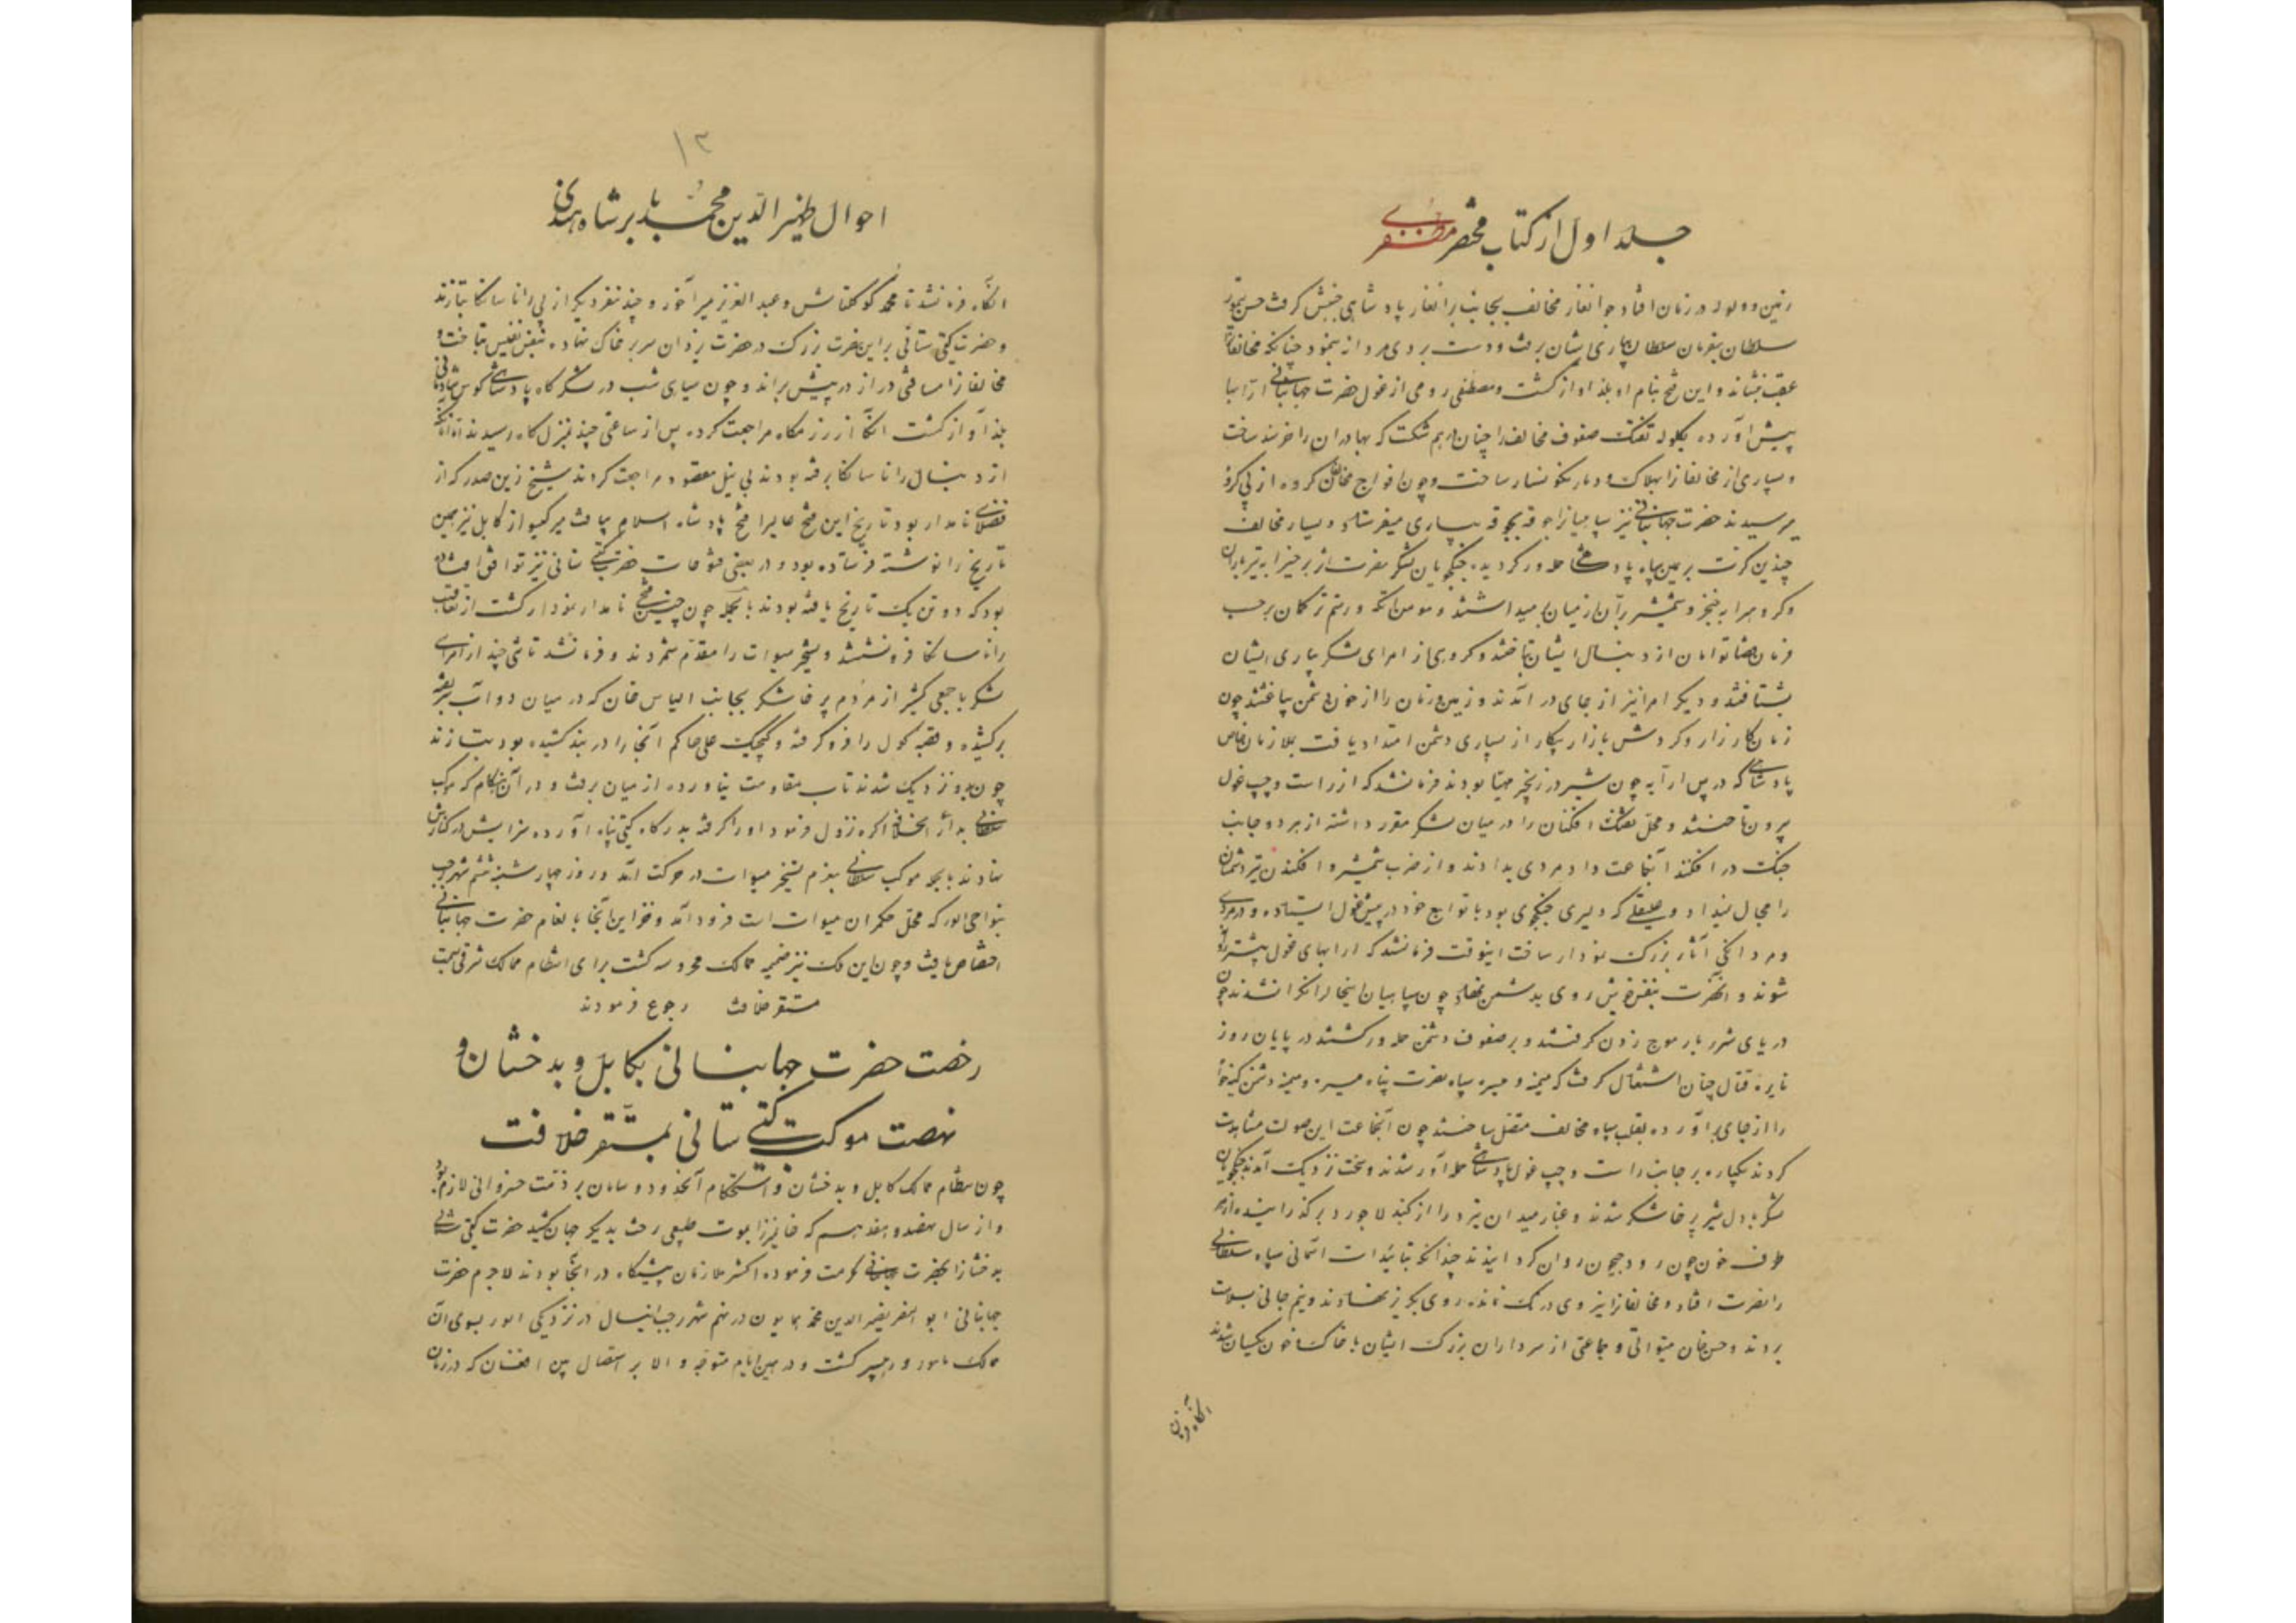 جلد اول از کتاب مختصر مظفری
زمین و ولوله در زمان افتاد جوانغار مخالف بجانب برانغار پادشاهی جنبش گرفت حسن تیمور
سلطان بفرمان سلطان بیاری ایشان برفت و دست بردی مردانه بنمود چنانکه مخالفان
عقب نشاند و این فتح بنام او بلند آوازه گشت و مصطفی رومی از غول حضرت جهانبانی ارابها
پیش آورده بگلوله تفنک صفوف مخالف را چنان درهم شکست که بهادران را خرسند ساخت
و بسیاری از مخالفانرا بهلاک و دمار نگونسار ساخت و چون افواج مخالف گروه از پی گروه
میرسیدند حضرت جهانبانی نیز سپاهیانرا جوقه بجوقه بیاری میفرستاد و بسیار مخالف
چندین کرت بر یمین سپاه پادشاهی حمله ور گردید جنگجویان لشکر نصرت اثر برخیرا به تیرباران
و گروهی را به خنجر و شمشیر بران از میان برمیداشتند و مومن اتکه و رستم ترکمان برحسب
فرمان قضا توامان از دنبال ایشان تاختند و گروهی از امرای لشکر بیاری ایشان
بشتافتند و دیگر امرا نیز از جای در آمدند و زمین و زمان را از خون دشمن بیاغشتند چون
زمان کارزار و گردش بازار پیکار از بسیاری دشمن امتداد یافت بملازمان خاص
پادشاهی که در پس ارابه چون شیر در زنجیر مهیا بودند فرمانشد که از راست و چپ غول
بیرون تاختند و محل تفنک افکنان را در میان لشکر مقرر داشته از هر دو جانب
جنک در افکنند آنجماعت داد مردی بدادند و از ضرب شمشیر و افکندن تیر دشمنان
را مجال نمیداد و علیقلی که دلیری جنگجوی بود با توابع خود در پیش غول ایستاده و در مردی
و مردانگی آثار بزرک نمودار ساخت اینوقت فرمانشد که ارابهای غول پیشتر رانده
شوند و آنحضرت بنفس خویش روی بدشمن نهاد چون سپاهیان اینحال را نگران شدند چون
دریای شرر بار موج زدن گرفتند و بر صفوف دشمن حمله ور گشتند در پایان روز
نایره قتال چنان اشتعال گرفت که میمنه و میسره سپاه نصرت پناه میسره و میمنه دشمن کینه خواه
را از جای برآورده بقلب سپاه مخالف متصل ساختند چون آنجماعت این صولت مشاهدت
کردند یکباره بر جانب راست و چپ غول پادشاهی حمله آور شدند و سخت نزدیک آمدند جنگجویان
لشکر با دل شیر پرخاشگر شدند و غبار میدان نبرد را از گنبد لاجورد برگذرانیده از هر
طرف خون چون رود جیحون روان گردانیدند چندانکه بتائیدات آسمانی سپاه سلطانی
را نصرت افتاد و مخالفانرا نیروی درنک نمانده روی بگریز نهادند و نیم جانی بسلامت
بردند و حسن خان میواتی و جماعتی از سرداران بزرک ایشان با خاک و خون یکسان شدند
آنگاه فرمان
۱۲
احوال ظهیر الدین محمد بابر شاه هندی
آنگاه فرمانشد تا محمد کوکلتاش و عبد العزیز میر آخور و چند نفر دیگر از پی رانا سانکا بتازند
و حضرت گیتی ستانی بر این نصرت بزرک در حضرت یزدان سر بر خاک نهاده بنفس نفیس بتاخت و
مخالفانرا مسافتی دراز در پیش براند و چون سیاهی شب در لشکرگاه پادشاهی کوس شادمانی
بلند آواز گشت آنگاه از رزمگاه مراجعت کرده پس از ساعتی چند بمنزل گاه رسیدند آنانکه
از دنبال رانا سانکا برفته بودند بی نیل مقصود مراجعت کردند شیخ زین صدر که از
فضلای نامدار بود تاریخ این فتح عالیرا فتح پادشاه اسلام بیافت میر گیسو از کابل نیز همین
تاریخ را نوشته فرستاده بود و در بعضی فتوحات حضرت گیتی ستانی نیز توافق افتاده
بود که دو تن یک تاریخ یافته بودند بالجمله چون چنین فتحی نامدار نمودار گشت از تعاقب
رانا سانکا فرو نشستند و تسخیر میوات را مقدم شمردند و فرمانشد تا تنی چند از امرای
لشکر با جمعی کثیر از مردم پرخاشگر بجانب الیاس خان که در میان دوآب سر بفتنه
برکشیده و قصبه کول را فرو گرفته و کیچک علی حاکم آنجا را در بند کشیده بود بتازند
چون بدو نزدیک شدند تاب مقاومت نیاورده از میان برفت و در آن هنگام که موکب
سلطانی به دار الخلافه آگره نزول فرمود او را گرفته بدرگاه گیتی پناه آورده سزایش در کنارش
نهادند بالجمله موکب سلطانی بعزم تسخیر میوات در حرکت آمد و روز چهارشنبه ششم شهر رجب
بنواحی الور که محل حکمران میوات است فرود آمد و خزاین آنجا بانعام حضرت جهانبانی
اختصاص یافت و چون این ملک نیز ضمیمه ممالک محروسه گشت برای انتظام ممالک شرقی بسمت
مستقر خلافت رجوع فرمودند
رخصت حضرت جهانبانی بکابل و بدخشان و
نهضت موکب گیتی ستانی بمستقر خلافت
چون نظام ممالک کابل و بدخشان و استحکام آنحدود و سامان بر ذمت خسروانی لازم بود
و از سال نهصد و هفدهم که خان میرزا بموت طبیعی رخت بدیگر جهان کشید حضرت گیتی ستانی
بدخشانرا بحضرت جهانبانی کرامت فرموده اکثر ملازمان پیشگاه در آنجا بودند لاجرم حضرت
جهانبانی ابو النصر نصیر الدین محمد همایون در نهم شهر رجب اینسال در نزدیکی الور بسوی آن
ممالک مامور و رهسپر گشت و در همین ایام متوجه والا بر استیصال بین افغان که در زمان